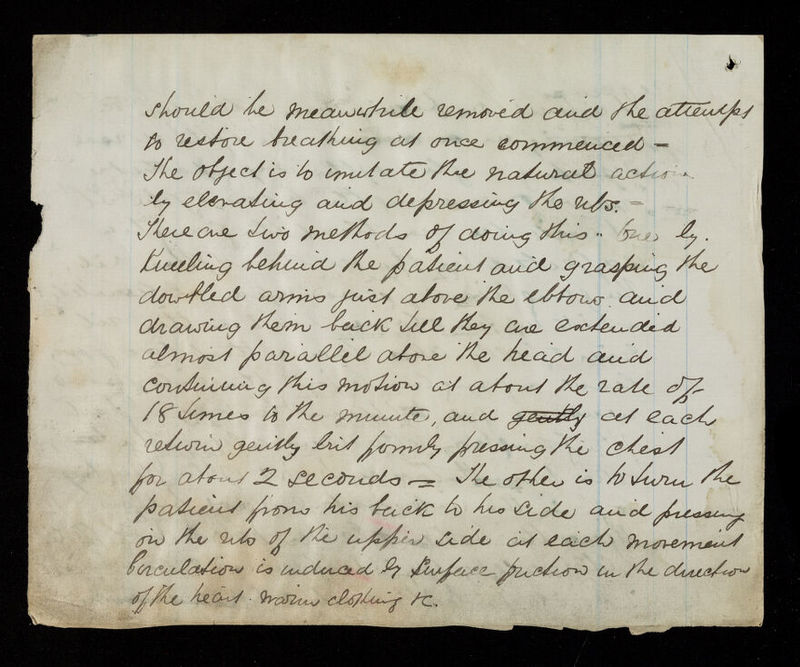 should be meanwhile removed and the attempt
to restore breathing at once commenced –
The object is to imitate the natural action
by elevating and depressing the ribs. –
There are two methods of doing this. One by
kneeling behind the patient and grasping the
doubled arms just above the elbows and
drawing them back till they are extended
almost parallel above the head and
continuing this motion at about the rate of
18 times to the minute, and gently at each
return gently but firmly pressing the chest
for about 2 seconds = The other is to turn the
patient from his back to his side and pressing
on the ribs of the upper side at each movement
Circulation is induced by surface friction in the direction
of the heart. warm clothing &c.